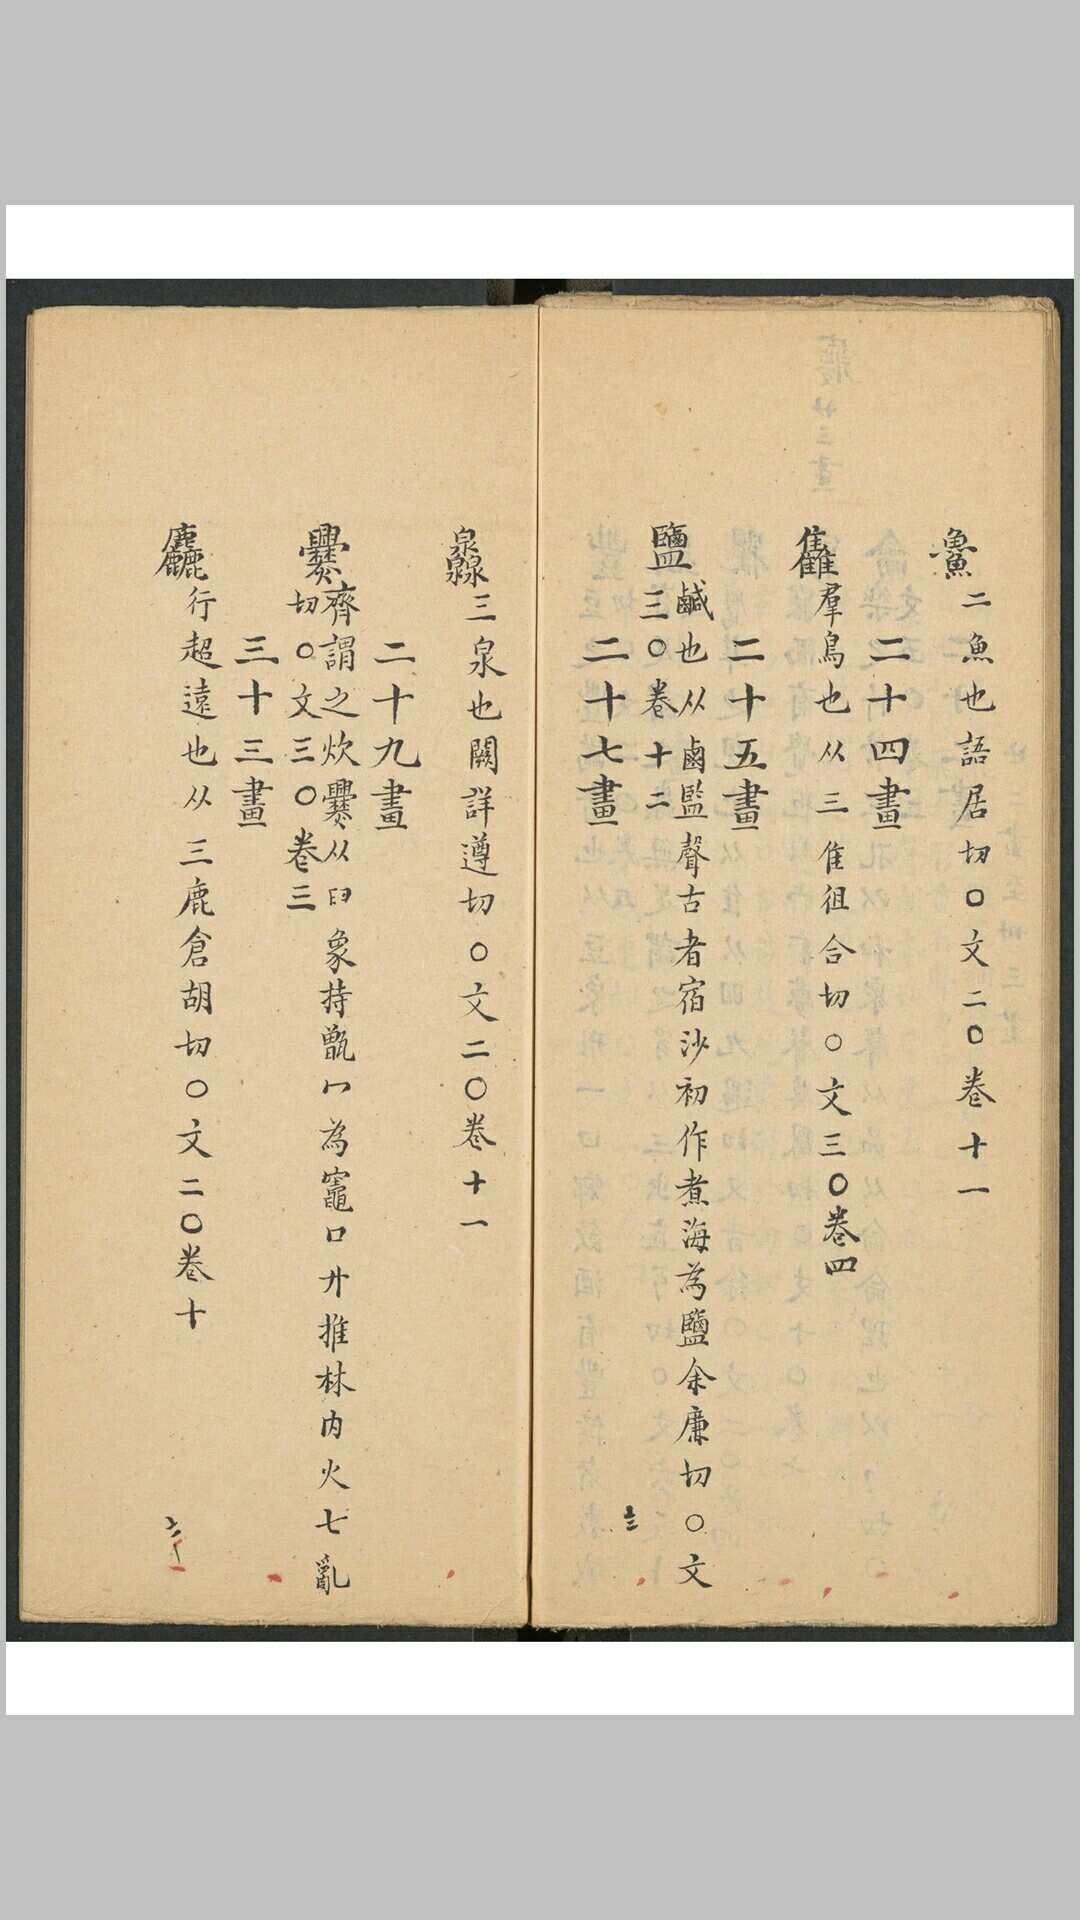 𩺰二魚也語居切〇文二〇卷十一
二十四畫
雥羣鳥也从三隹徂合切〇文三〇卷四
二十五畫
鹽鹹也从鹵監聲古者宿沙初作煮海為鹽余廉切〇文
三〇卷十二
二十七畫
灥三泉也闕詳遵切〇文二〇卷十一
二十九畫
爨齊謂之炊爨从𦥑象持甑冖為竈口廾推林内火七亂
切〇文三〇卷三
三十三畫
麤行超遠也从三鹿倉胡切〇文二〇卷十